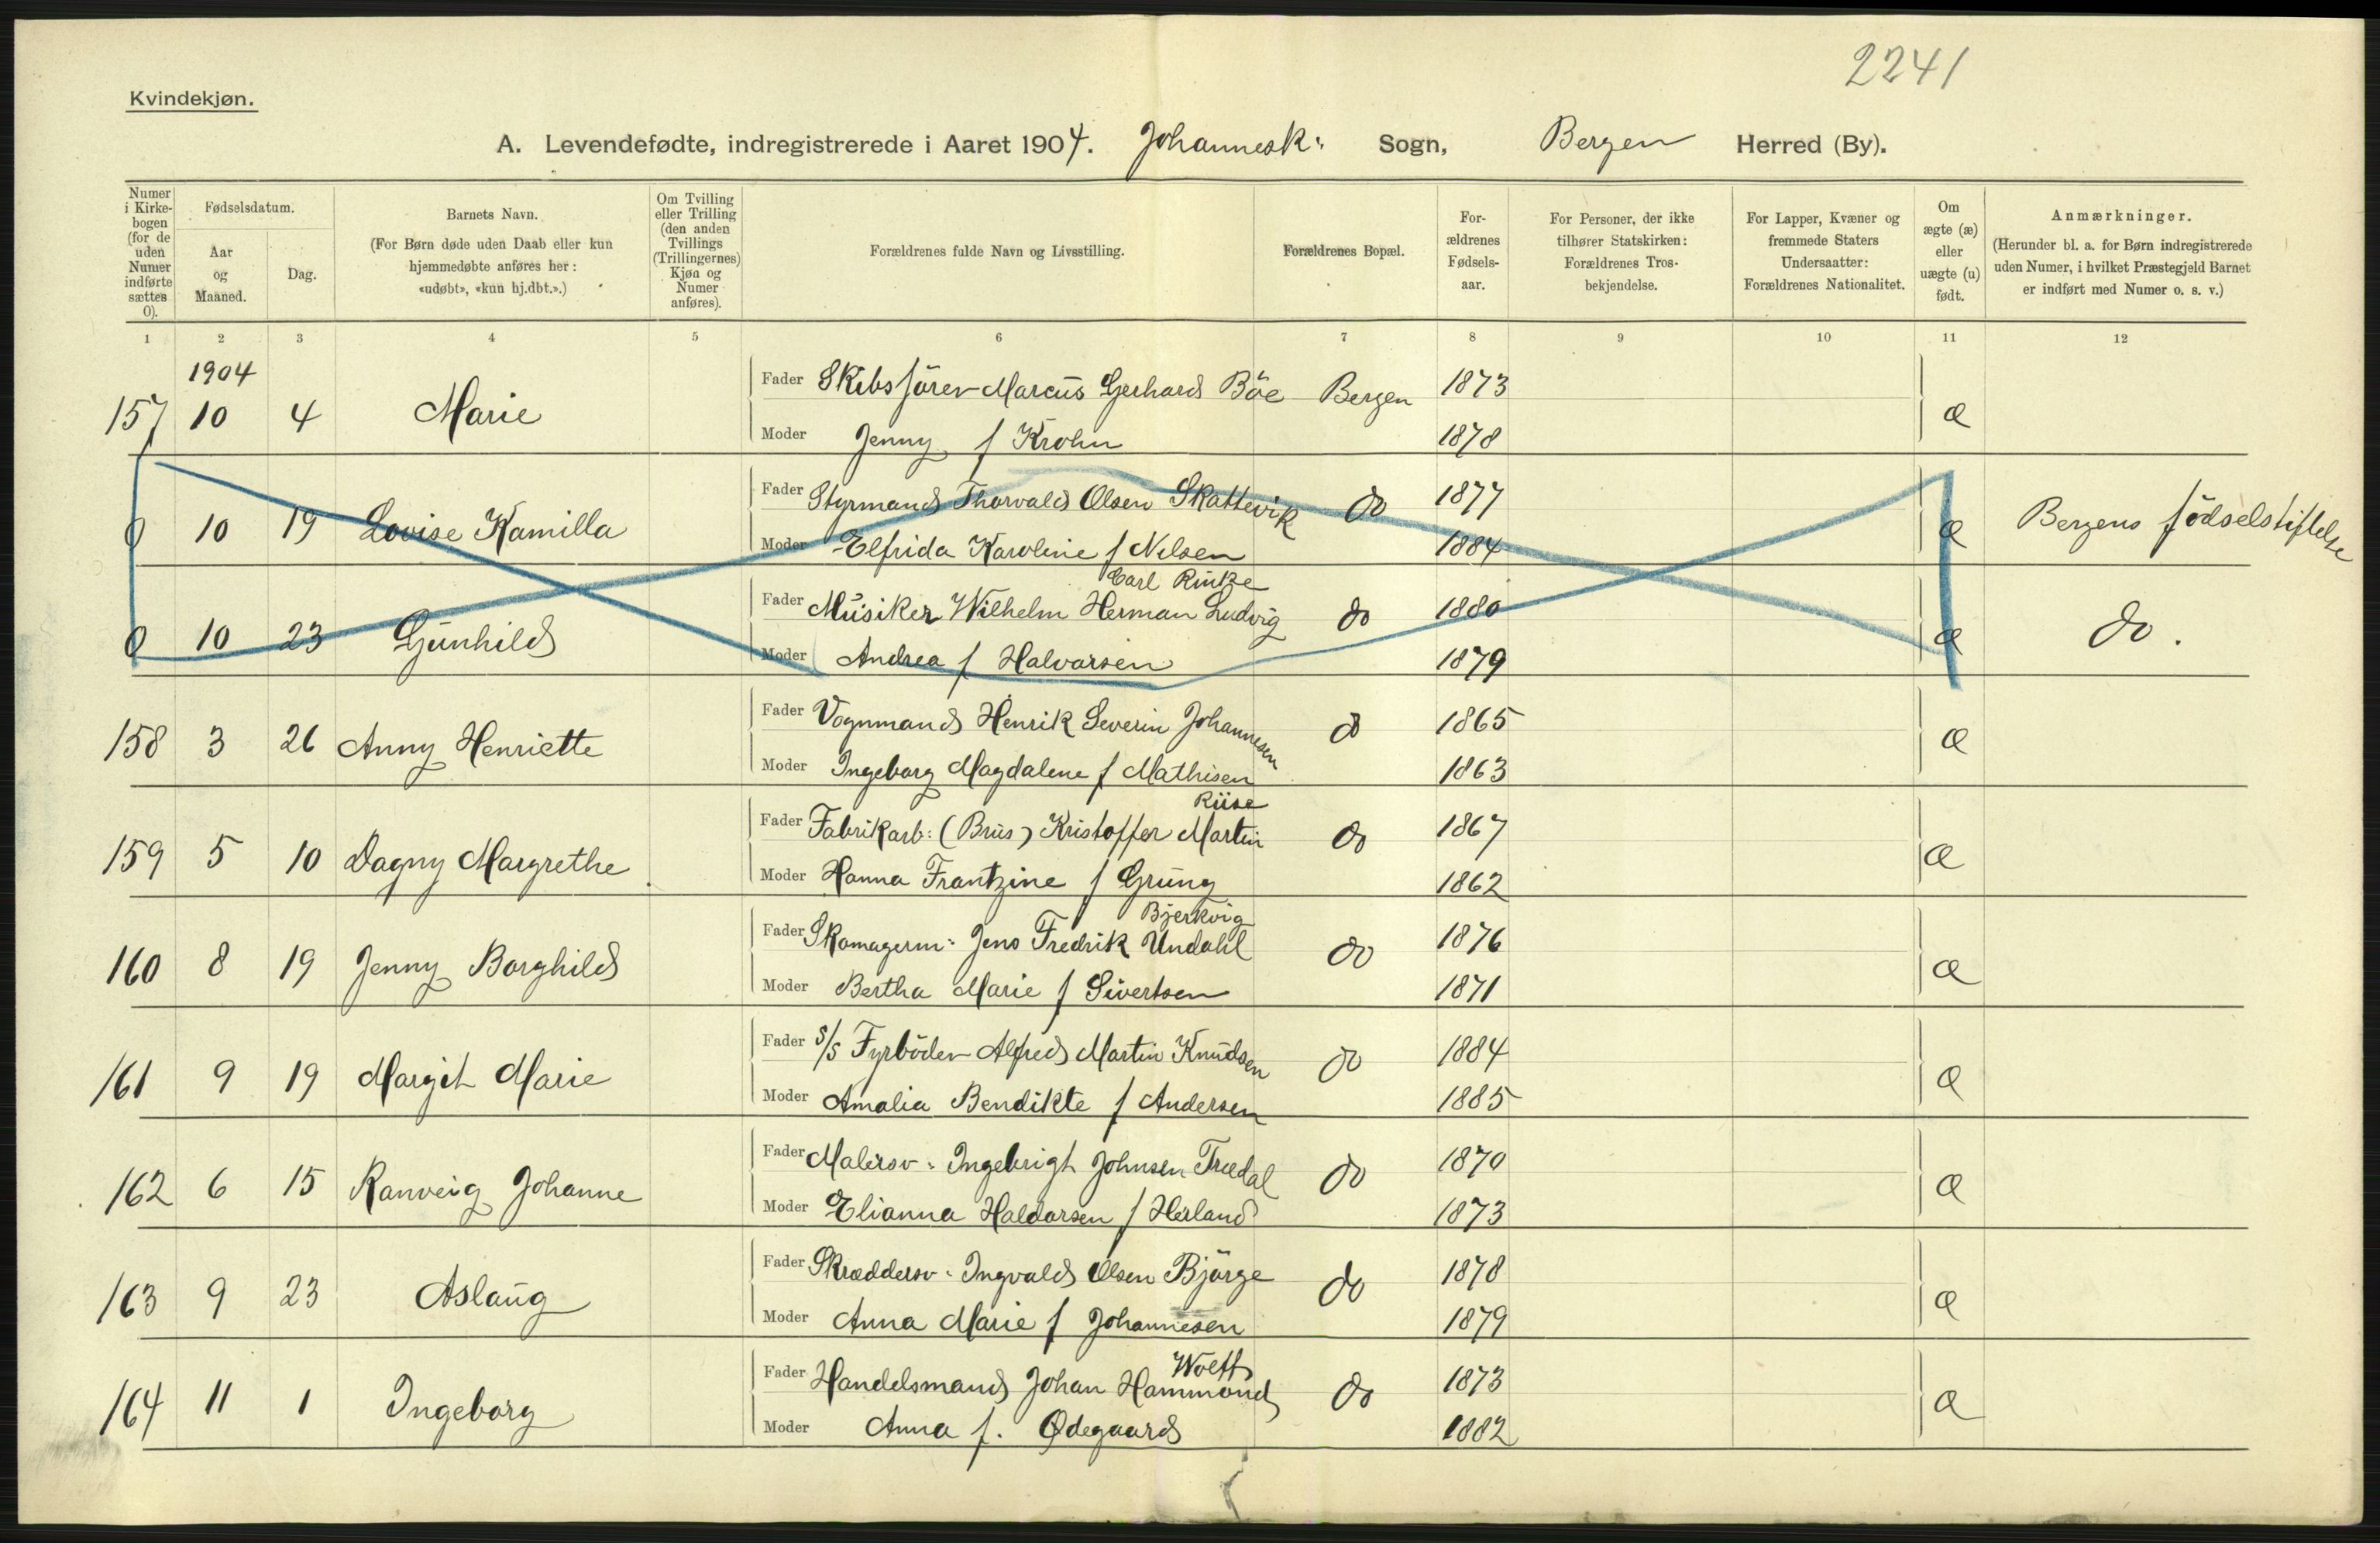 2241
Kvindekjøn.
A. Levendefødte, indregistrerede i Aaret 1904. Johannesk: Sogn, Bergen Herred (By).
Numer i Kirkebogen (for de uden Numer indførte sættes 0).
Fødselsdatum.
Aar og Maaned.
Dag.
Barnets Navn.
(For Børn døde uden Daab eller kun hjemmedøbte anføres her: «udøbt», «kun hj.dbt.».)
Om Tvilling eller Trilling (den anden Tvillings (Trillingernes) Kjøn og Numer anføres).
Forældrenes fulde Navn og Livsstilling.
Forældrenes Bopæl.
For-ældrenes Fødsels-aar.
For Personer, der ikke tilhører Statskirken: Forældrenes Tros-bekjendelse.
For Lapper, Kvæner og fremmede Staters Undersaatter: Forældrenes Nationalitet.
Om ægte (æ) eller uægte (u) født.
Anmærkninger.
(Herunder bl. a. for Børn indregistrerede uden Numer, i hvilket Præstegjeld Barnet er indført med Numer o. s. v.)
1 2 3 4 5 6 7 8 9 10 11 12
1904
157 10 4 Marie Fader Skibsförer Marcus Gerhard Böe Bergen 1873 æ
Moder Jenny f Krohn 1878
0 10 19 Lovise Kamilla Fader Styrmand Thorvald Olsen Skattevik do 1877 æ Bergens födselstiftelse
Moder Elfrida Karoline f Nilsen 1884
Carl Rinke
0 10 23 Gunhild Fader Musiker Wilhelm Herman Ludvig do 1880 æ do.
Moder Andrea f Halvorsen 1879
158 3 26 Anny Henriette Fader Vognmand Henrik Severin Johannesen do 1865 æ
Moder Ingeborg Magdalene f Mathisen 1863
Riise
159 5 10 Dagny Margrethe Fader Fabrikarb: (Brus) Kristoffer Martin do 1867 æ
Moder Hanna Frantzine f Grung 1862
Bjerkvig
160 8 19 Jenny Borghild Fader Skomagerm: Jens Fredrik Undahl do 1876 æ
Moder Bertha Marie f Sivertsen 1871
161 9 19 Margit Marie Fader S/S Fyrböder Alfred Martin Knudsen do 1884 æ
Moder Amalia Bendikte f Andersen 1885
162 6 15 Ranveig Johanne Fader Malersv: Ingebrigt Johnsen Trædal do 1870 æ
Moder Elianna Haldorsen f Herland 1873
163 9 23 Aslaug Fader Skræddersv: Ingvald Olsen Björge do 1878 æ
Moder Anna Marie f Johannesen 1879
164 11 1 Ingeborg Fader Handelsmand Johan Hammond do 1873 æ
Moder Anna f. Ødegaard 1882